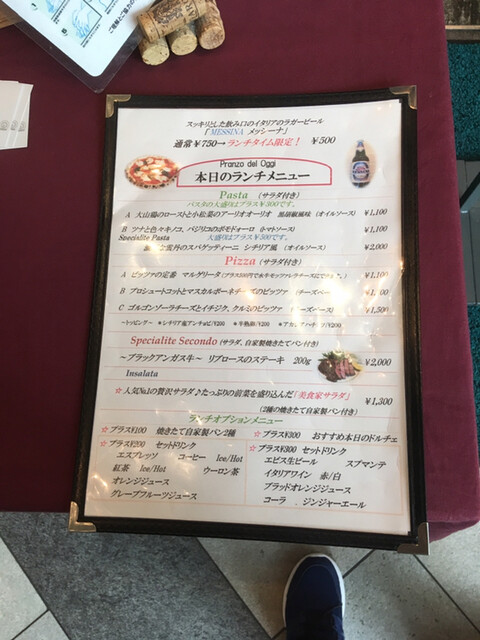 スッキリとした飲み口のイタリアのラガービール
「MESSINA メッシーナ」
通常￥750→ランチタイム限定！ ￥500
Pranzo del Oggi
本日のランチメニュー
Pasta (サラダ付き)
パスタの大盛りはプラス￥300です。
A 大山鶏のローストと小松菜のアーリオオーリオ 黒胡椒風味 (オイルソース) ￥1,100
B ツナと色々キノコ、バジリコのポモドーロ (トマトソース) ￥1,100
Specialite Pasta 大盛りはプラス￥500です。
雲丹のスパゲッティーニ シチリア風 (オイルソース) ￥2,000
Pizza (サラダ付き)
A ピッツァの定番 マルゲリータ (プラス500円で水牛モッツァレラチーズに ￥1,100
B プロシュートコットとマスカルポーネチーズのピッツァ (チーズベース) ￥1,100
C ゴルゴンゾーラチーズとイチジク、クルミのピッツァ (チーズベース) ￥1,500
～トッピング～ ＊シチリア産アンチョビ/￥200 ＊半熟卵/￥200 ＊アカシアハチミツ/￥200
Specialite Secondo (サラダ、自家製焼きたてパン付き)
～ブラックアンガス牛～ リブロースのステーキ 200g ￥2,000
Insalata
☆人気№1の贅沢サラダ♪たっぷりの前菜を盛り込んだ「美食家サラダ」 ￥1,300
(2種の焼きたてパン付き)
ランチオプションメニュー
☆プラス￥100 焼きたて自家製パン2種
☆プラス￥300 おすすめ本日のドルチェ
☆プラス￥200 セットドリンク
エスプレッソ コーヒー Ice/Hot
紅茶 Ice/Hot ウーロン茶
オレンジジュース
グレープフルーツジュース
☆プラス￥300 セットドリンク
エビス生ビール スプマンテ
イタリアワイン 赤/白
ブラッドオレンジジュース
コーラ . ジンジャーエール